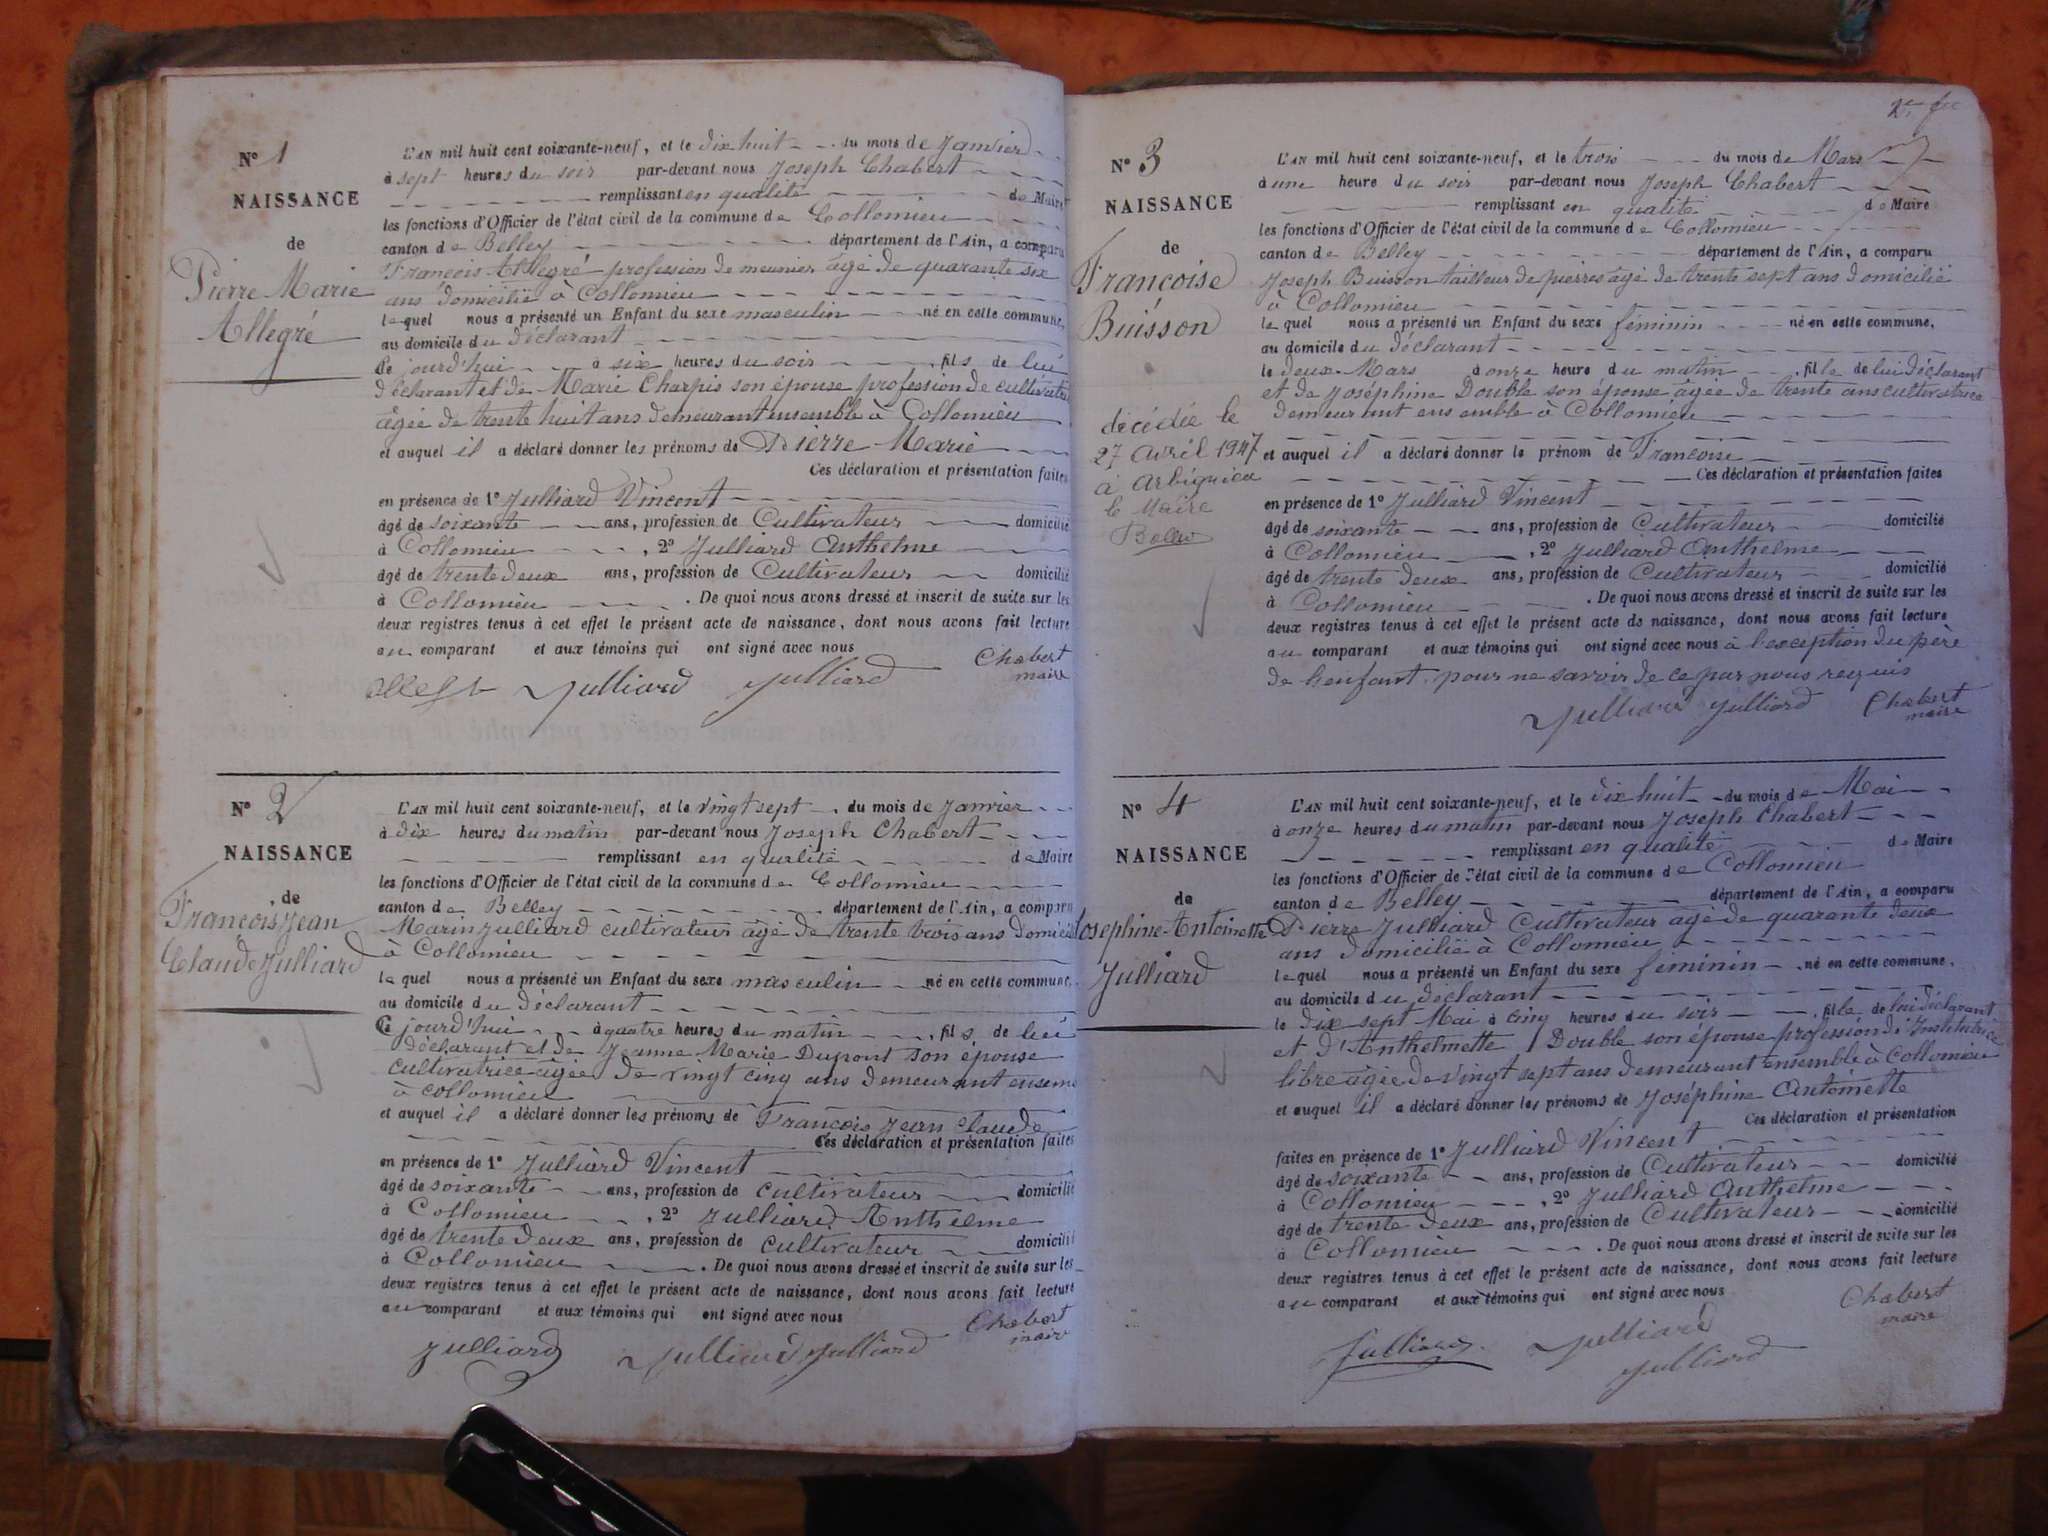 N° 1
NAISSANCE
de
Pierre Marie
Allegré
L'AN mil huit cent soixante-neuf, et le dix huit du mois de Janvier
à sept heures du soir par-devant nous Joseph Chabert
remplissant en qualité de Maire
les fonctions d'Officier de l'état civil de la commune de Collomieu
canton de Belley département de l'Ain, a comparu
François Allegré profession de meunier âgé de quarante six
ans domicilié à Collomieu
lequel nous a présenté un Enfant du sexe masculin né en cette commune,
au domicile du déclarant
ce jourd'hui à six heures du soir fils de lui
déclarant et de Marie Charpis son épouse profession de cultivatrice
âgée de trente huit ans demeurant ensemble à Collomieu
et auquel il a déclaré donner les prénoms de Pierre Marie
Ces déclaration et présentation faites
en présence de 1° Julliard Vincent
âgé de soixante ans, profession de Cultivateur domicilié
à Collomieu , 2° Julliard Anthelme
âgé de trente deux ans, profession de Cultivateur domicilié
à Collomieu . De quoi nous avons dressé et inscrit de suite sur les
deux registres tenus à cet effet le présent acte de naissance, dont nous avons fait lecture
au comparant et aux témoins qui ont signé avec nous
Julliard Julliard Chabert
maire
N° 2
NAISSANCE
de
François Jean
Claude Julliard
L'AN mil huit cent soixante-neuf, et le vingt sept du mois de Janvier
à dix heures du matin par-devant nous Joseph Chabert
remplissant en qualité de Maire
les fonctions d'Officier de l'état civil de la commune de Collomieu
canton de Belley département de l'Ain, a comparu
Marin Julliard cultivateur âgé de trente trois ans domicilié
à Collomieu
lequel nous a présenté un Enfant du sexe masculin né en cette commune,
au domicile du déclarant
Ce jourd'hui à quatre heures du matin fils de lui
déclarant et de Jeanne Marie Dupont son épouse
cultivatrice âgée de vingt cinq ans demeurant ensem
à collomieu
et auquel il a déclaré donner les prénoms de François Jean Claude
Ces déclaration et présentation faites
en présence de 1° Julliard Vincent
âgé de soixante ans, profession de cultivateur domicilié
à Collomieu , 2° Julliard Anthelme
âgé de trente deux ans, profession de cultivateur domicilié
à Collomieu . De quoi nous avons dressé et inscrit de suite sur les
deux registres tenus à cet effet le présent acte de naissance, dont nous avons fait lecture
au comparant et aux témoins qui ont signé avec nous
Julliard Julliard Julliard Chabert
maire
N° 3
NAISSANCE
de
Françoise
Buisson
décédée le
27 avril 1947
à Arbignieu
le Maire
L'AN mil huit cent soixante-neuf, et le trois du mois de Mars
à une heure du soir par-devant nous Joseph Chabert
remplissant en qualité de Maire
les fonctions d'Officier de l'état civil de la commune de Collomieu
canton de Belley département de l'Ain, a comparu
Joseph Buisson tailleur de pierres âgé de trente sept ans domicilié
à Collomieu
lequel nous a présenté un Enfant du sexe féminin né en cette commune,
au domicile du déclarant
le deux Mars à onze heure du matin fille de lui déclarant
et de Joséphine Double son épouse âgée de trente ans cultivatrice
demeurant ensemble à Collomieu
et auquel il a déclaré donner le prénom de Françoise
Ces déclaration et présentation faites
en présence de 1° Julliard Vincent
âgé de soixante ans, profession de Cultivateur domicilié
à Collomieu , 2° Julliard Anthelme
âgé de trente deux ans, profession de Cultivateur domicilié
à Collomieu . De quoi nous avons dressé et inscrit de suite sur les
deux registres tenus à cet effet le présent acte de naissance, dont nous avons fait lecture
au comparant et aux témoins qui ont signé avec nous à l'exception du père
de l'enfant pour ne savoir de ce par nous requis
Julliard Julliard Chabert
maire
N° 4
NAISSANCE
de
Josephine Antoinette
Julliard
L'AN mil huit cent soixante-neuf, et le dix huit du mois de Mai
à onze heures du matin par-devant nous Joseph Chabert
remplissant en qualité de Maire
les fonctions d'Officier de l'état civil de la commune de Collomieu
canton de Belley département de l'Ain, a comparu
Pierre Julliard Cultivateur âgé de quarante deux
ans domicilié à Collomieu
lequel nous a présenté un Enfant du sexe féminin né en cette commune,
au domicile du déclarant
le dix sept Mai à cinq heures du soir fille de lui déclarant
et d'Anthelmette Double son épouse profession d'Institutrice
libre âgée de vingt sept ans demeurant ensemble à Collomieu
et auquel il a déclaré donner les prénoms de Joséphine Antoinette
Ces déclaration et présentation
faites en présence de 1° Julliard Vincent
âgé de soixante ans, profession de Cultivateur domicilié
à Collomieu , 2° Julliard Anthelme
âgé de trente deux ans, profession de Cultivateur domicilié
à Collomieu . De quoi nous avons dressé et inscrit de suite sur les
deux registres tenus à cet effet le présent acte de naissance, dont nous avons fait lecture
au comparant et aux témoins qui ont signé avec nous
Julliard Julliard Chabert
Julliard maire